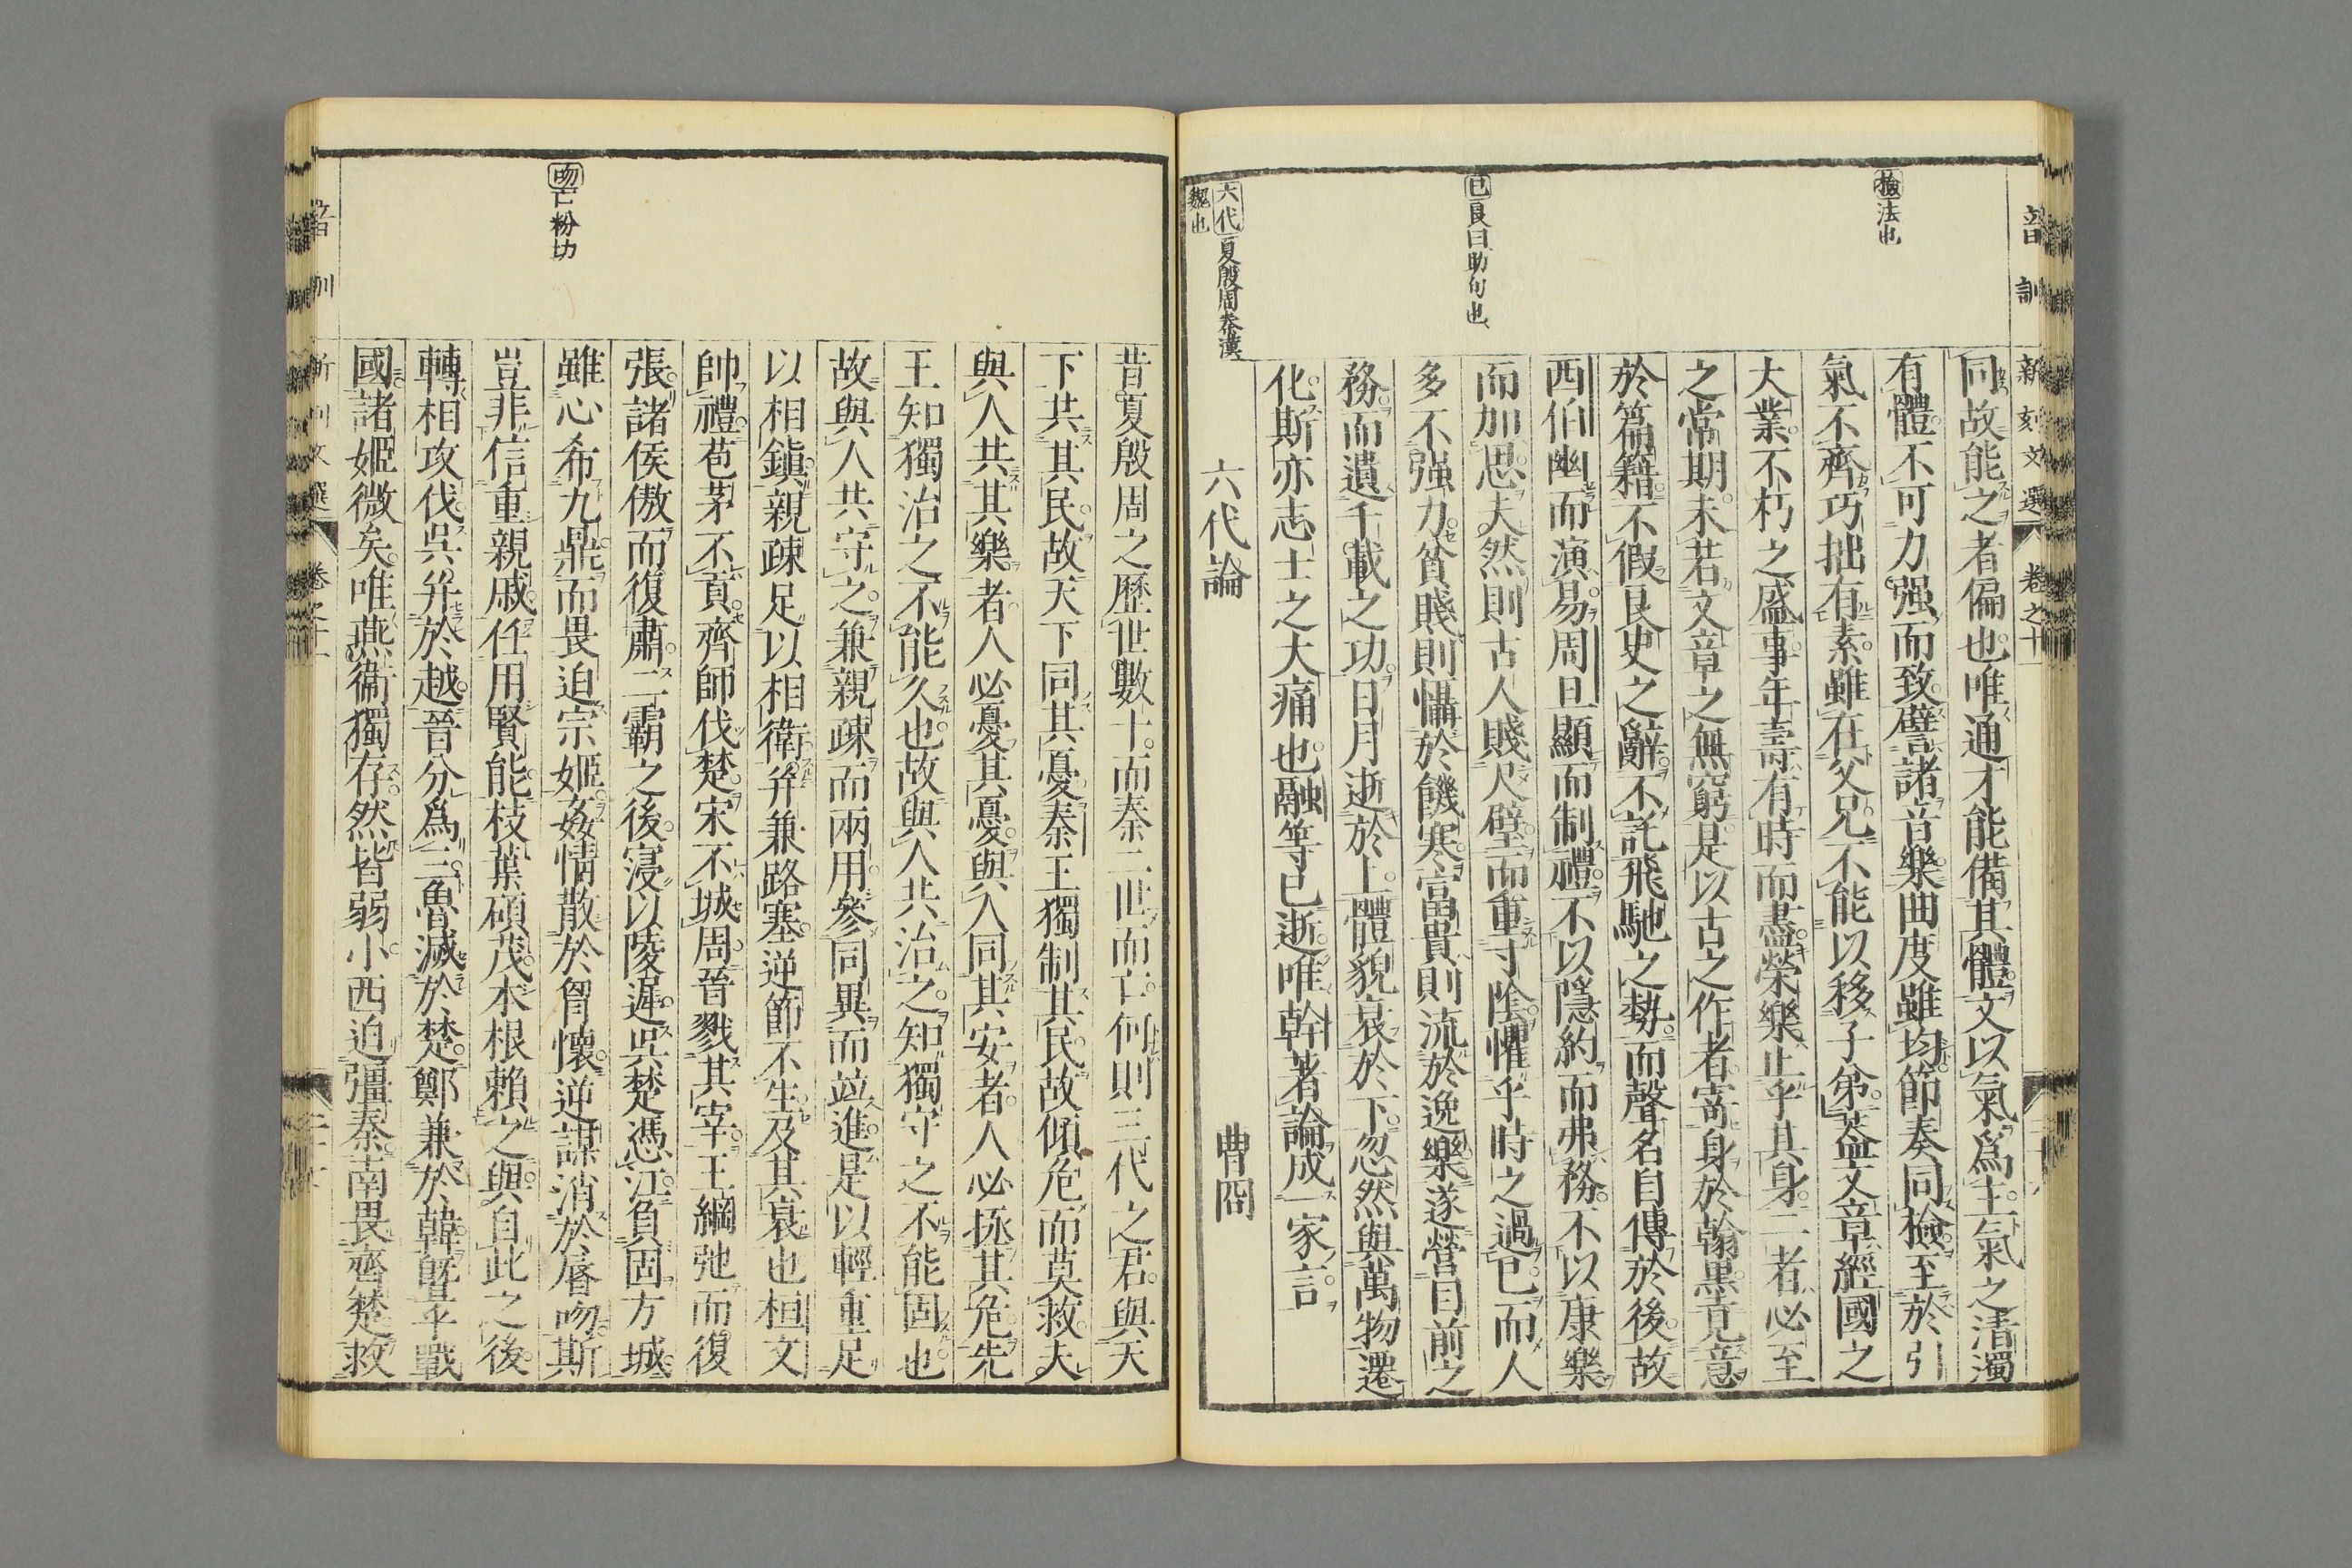 音訓 新刻文選 卷之十
檢法也
已良曰助句也
六代夏殷周秦漢
魏也
同故能之者偏也唯通才能備其體文以氣爲主氣之清濁
有體不可力强而致譬諸音樂曲度雖均節奏同檢至於引
氣不齊巧拙有素雖在父兄不能以移子弟蓋文章經國之
大業不朽之盛事年壽有時而盡榮樂止乎其身二者必至
之常期未若文章之無窮是以古之作者寄身於翰墨見意
於篇籍不假良史之辭不託飛馳之勢而聲名自傳於後故
西伯幽而演易周旦顯而制禮不以隱約而弗務不以康樂
而加思夫然則古人賤尺璧而重寸陰懼乎時之過已而人
多不强力貧賤則懾於饑寒富貴則流於逸樂遂營目前之
務而遺千載之功日月逝於上體貌衰於下忽然與萬物遷
化斯亦志士之大痛也融等已逝唯幹著論成一家言
六代論 曹冏
吻亡粉切
昔夏殷周之歷世數十而秦二世而亡何則三代之君與天
下共其民故天下同其憂秦王獨制其民故傾危而莫救夫
與人共其樂者人必憂其憂與人同其安者人必拯其危先
王知獨治之不能久也故與人共治之知獨守之不能固也
故與人共守之兼親疎而兩用參同異而竝進是以輕重足
以相鎮親疎足以相衛并兼路塞逆節不生及其衰也桓文
帥禮苞茅不貢齊師伐楚宋不城周晉戮其宰王綱弛而復
張諸侯傲而復肅二霸之後寖以陵遲吳楚憑江負固方城
雖心希九鼎而畏迫宗姬姦情散於胷懷逆謀消於唇吻斯
豈非信重親戚任用賢能枝葉碩茂本根賴之與自此之後
轉相攻伐吳并於越晉分爲三魯滅於楚鄭兼於韓曁乎戰
國諸姬微矣唯燕衞獨存然皆弱小西迫彊秦南畏齊楚救
音訓 新刻文選 卷之十